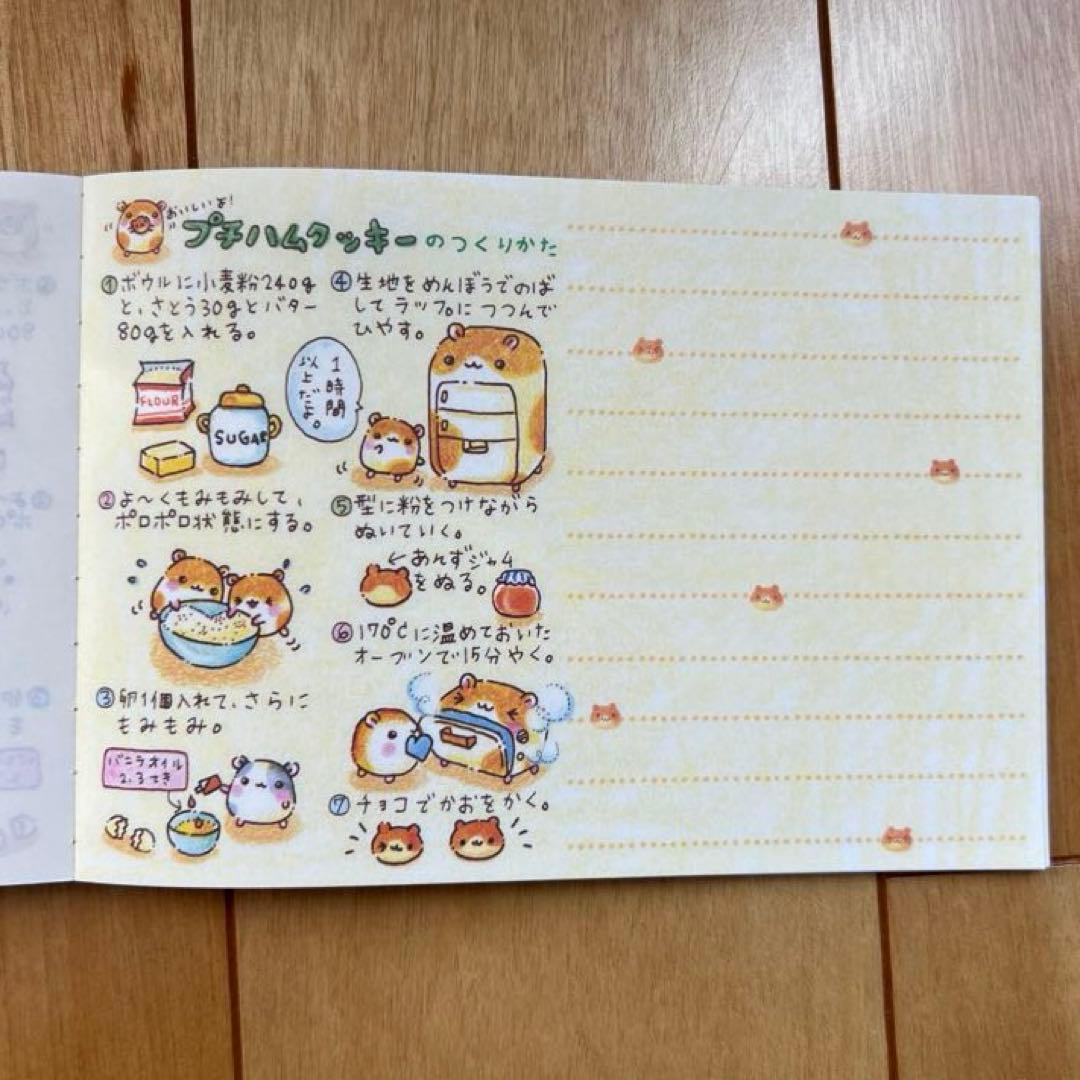 おいしいよ!
プチハムクッキーのつくりかた
①ボウルに小麦粉240g
と、さとう30gとバター
80gを入れる。
FLOUR
SUGAR
②よ〜くもみもみして、
ポロポロ状態にする。
③卵1個入れて、さらに
もみもみ。
バニラオイル
2、3てき
④生地をめんぼうでのば
してラップにつつんで
ひやす。
1時間
以上だよ。
⑤型に粉をつけながら
ぬいていく。
←あんずジャム
をぬる。
⑥170℃に温めておいた
オーブンで15分やく。
⑦チョコでかおをかく。